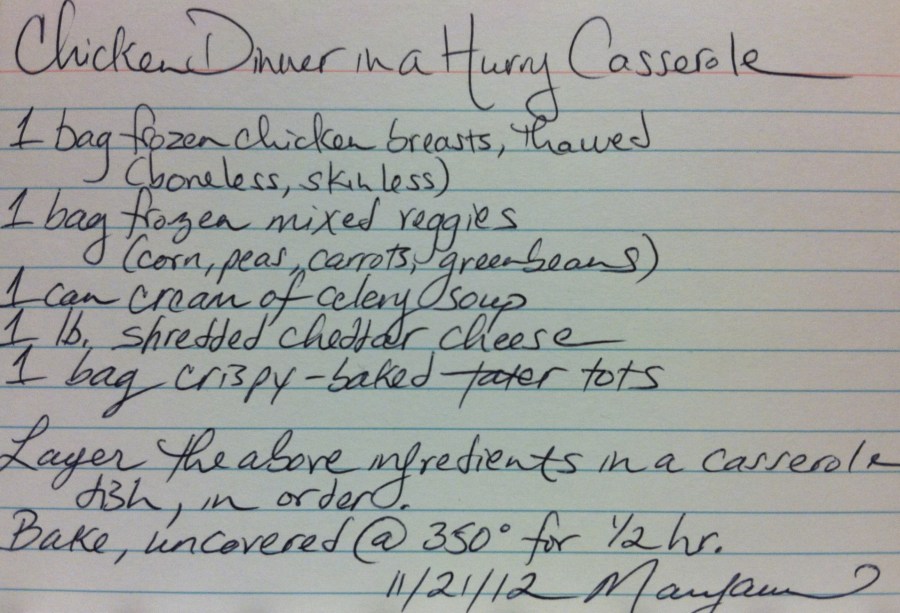 Chicken Dinner in a Hurry Casserole
1 bag frozen chicken breasts, thawed
(boneless, skinless)
1 bag frozen mixed veggies
(corn, peas, carrots, greenbeans)
1 can cream of celery soup
1 lb. shredded cheddar cheese
1 bag crispy-baked tater tots
Layer the above ingredients in a casserole
dish, in order.
Bake, uncovered @ 350° for 1/2 hr.
11/21/12